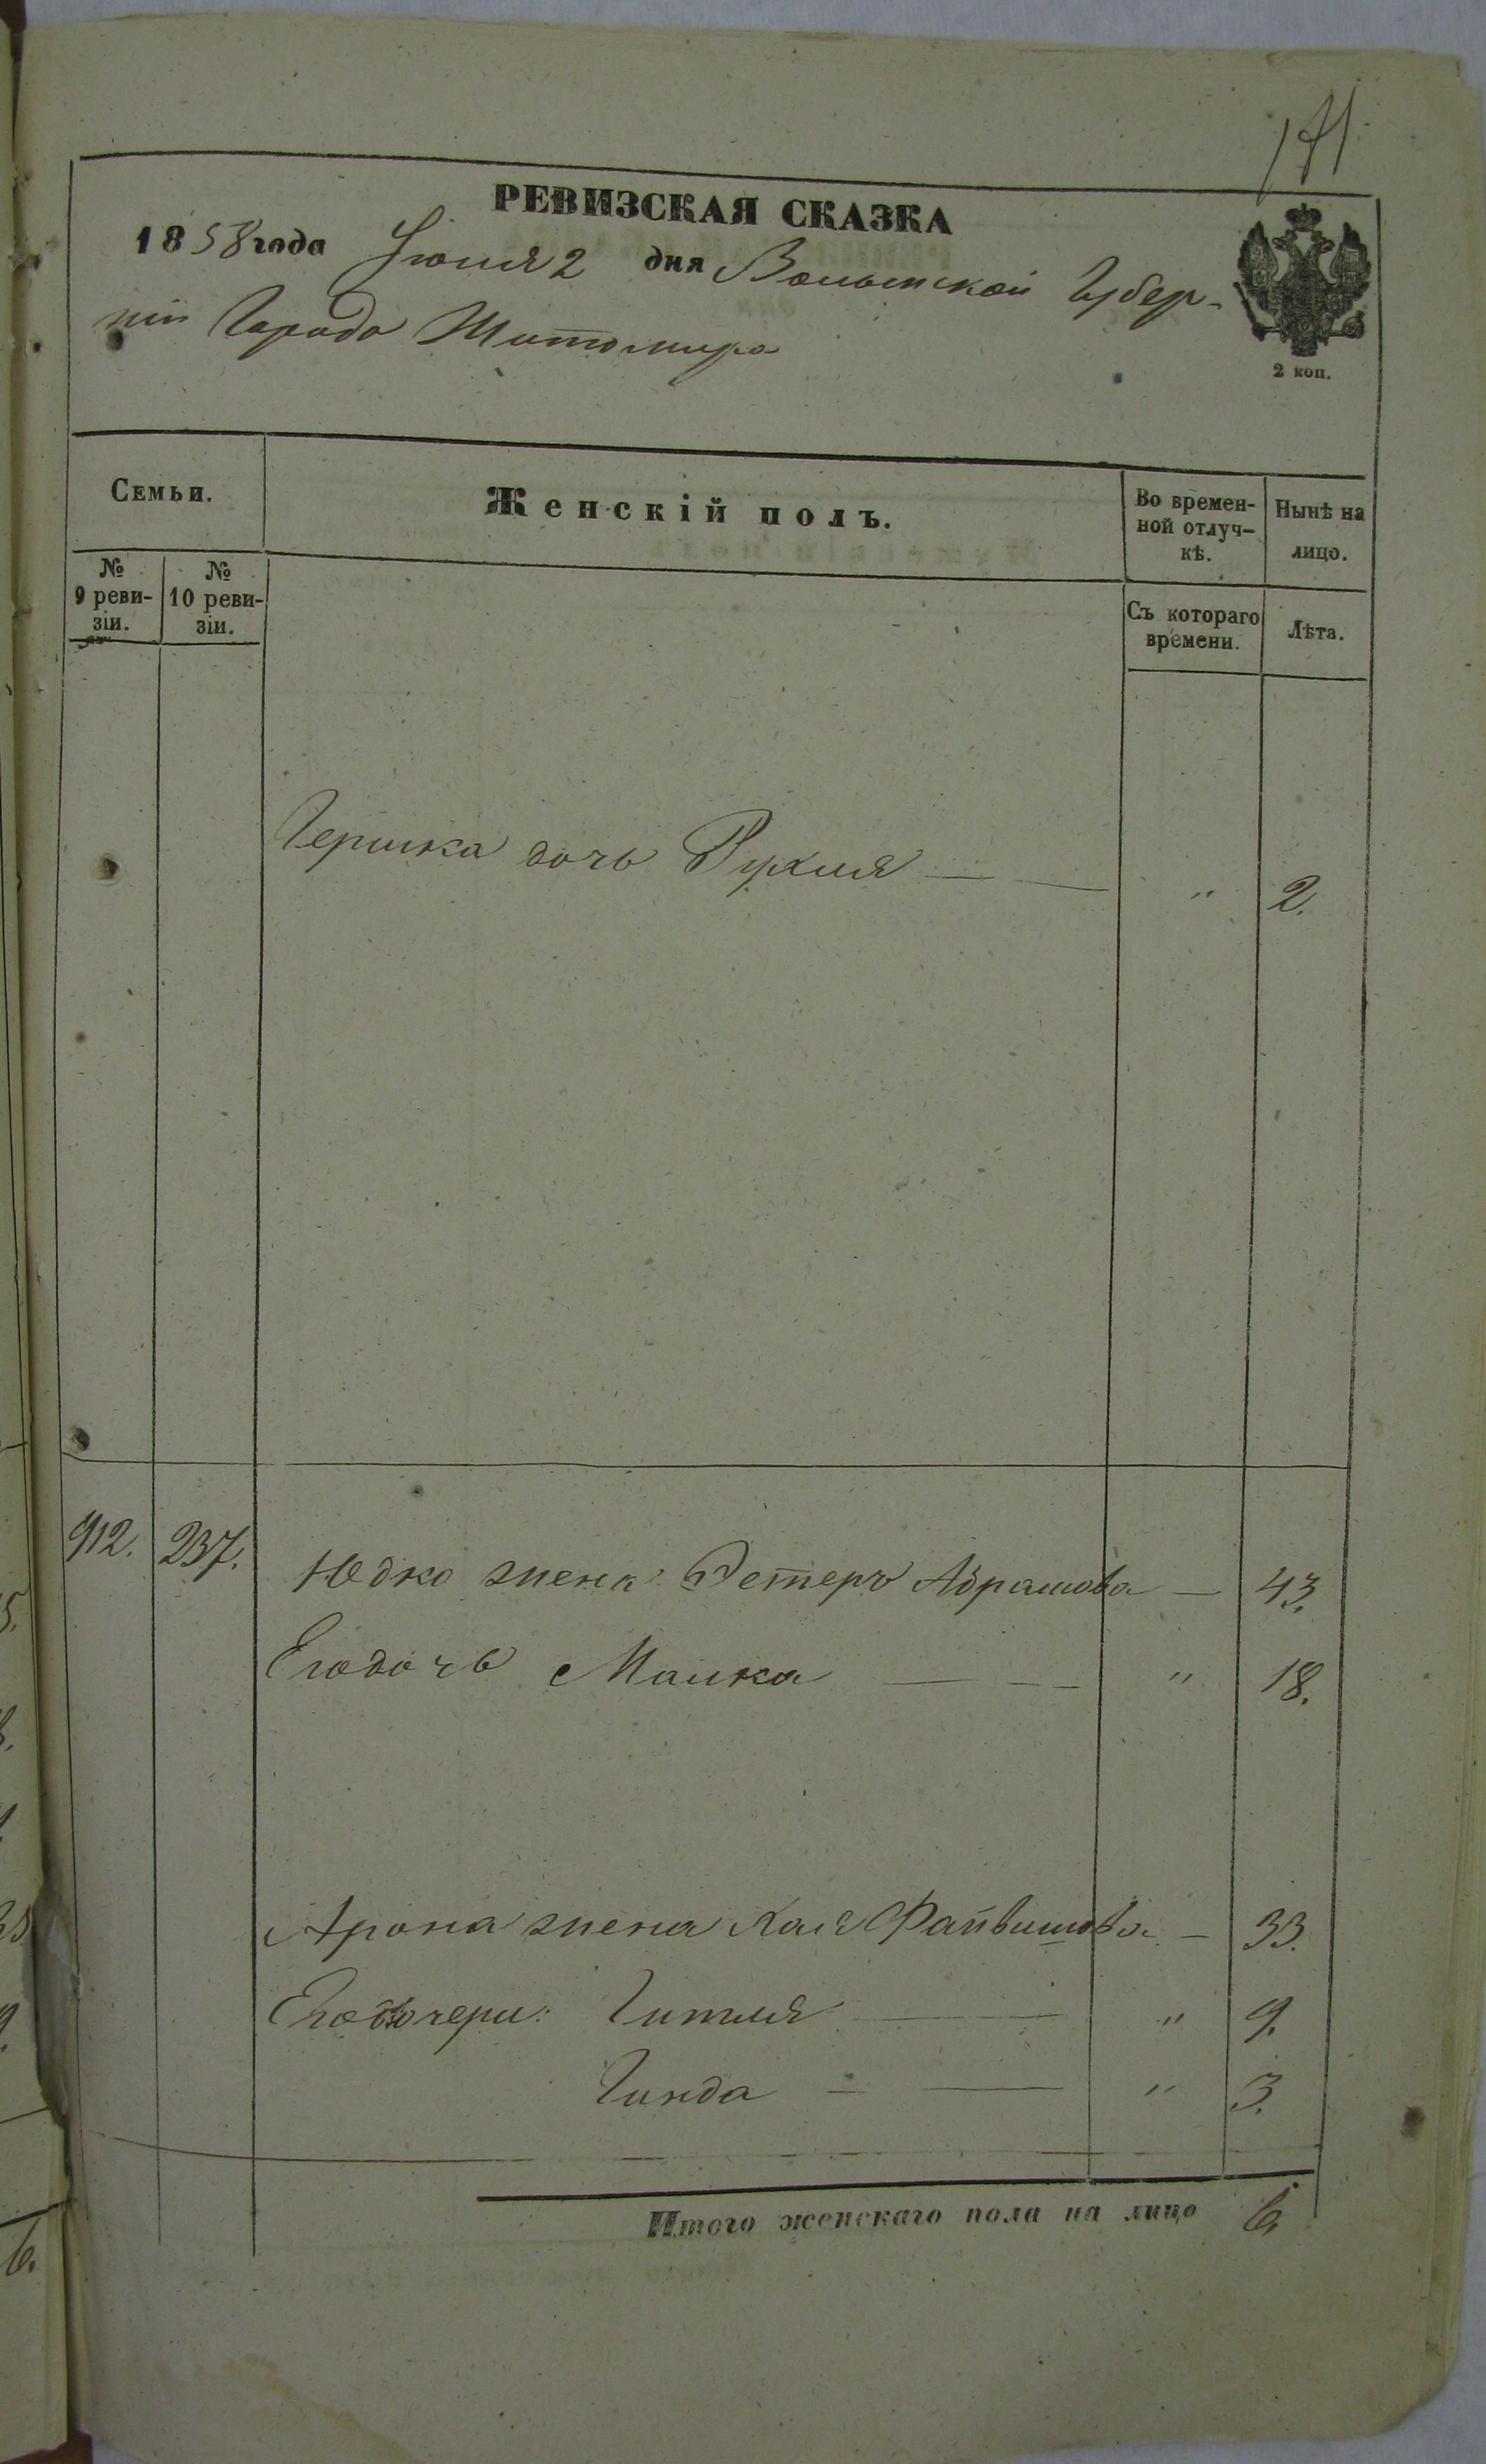 171.
РЕВИЗСКАЯ СКАЗКА
1858 года Іюня 2 дня Волынской Губер-
ніи Города Житомира
2 коп.
Семьи.
Женскій полъ.
Во времен-
ной отлуч-
кѣ.
Нынѣ на
лицо.
№
9 реви-
зіи.
№
10 реви-
зіи.
Съ котораго
времени.
Лѣта.
Гершка дочь Рухля — — " 2.
912. 237. Юдко жена Эстеръ Абрамова — 43.
Его дочь Малка — — — " 18.
Арона жена Хая Файвишова — 33.
Его дочери: Гитля — " 9.
Гинда — — " 3.
Итого женскаго пола на лицо 6.